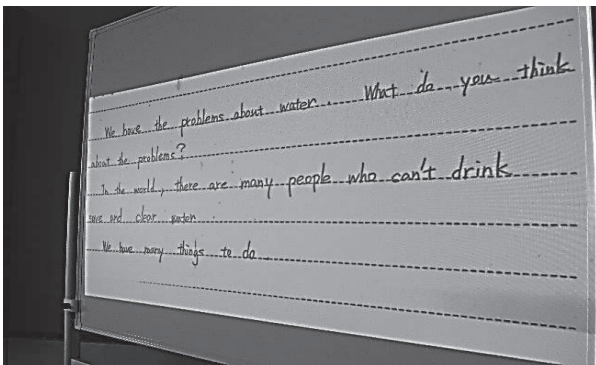 We have the problems about water. What do you think
about the problems?
In the world, there are many people who can't drink
save and clear water.
We have many things to do